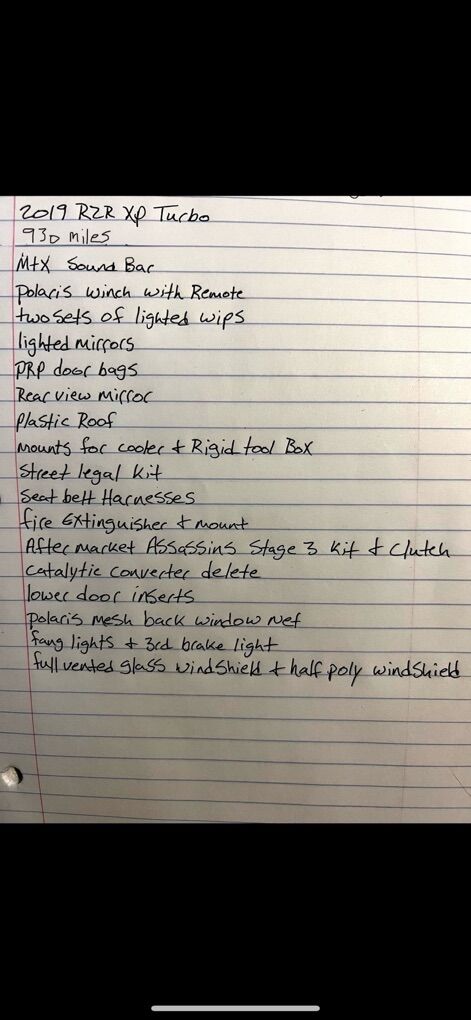 2019 RZR XP Turbo
930 miles
MTX Sound Bar
polaris winch with Remote
two sets of lighted wips
lighted mirrors
PRP door bags
Rear view mirror
Plastic Roof
mounts for cooler + Rigid tool Box
Street legal kit
Seat belt Harnesses
fire Extinguisher + mount
After market Assassins Stage 3 kit + Clutch
catalytic converter delete
lower door inserts
polaris mesh back window net
fang lights + 3rd brake light
full vented glass windshield + half poly windshield